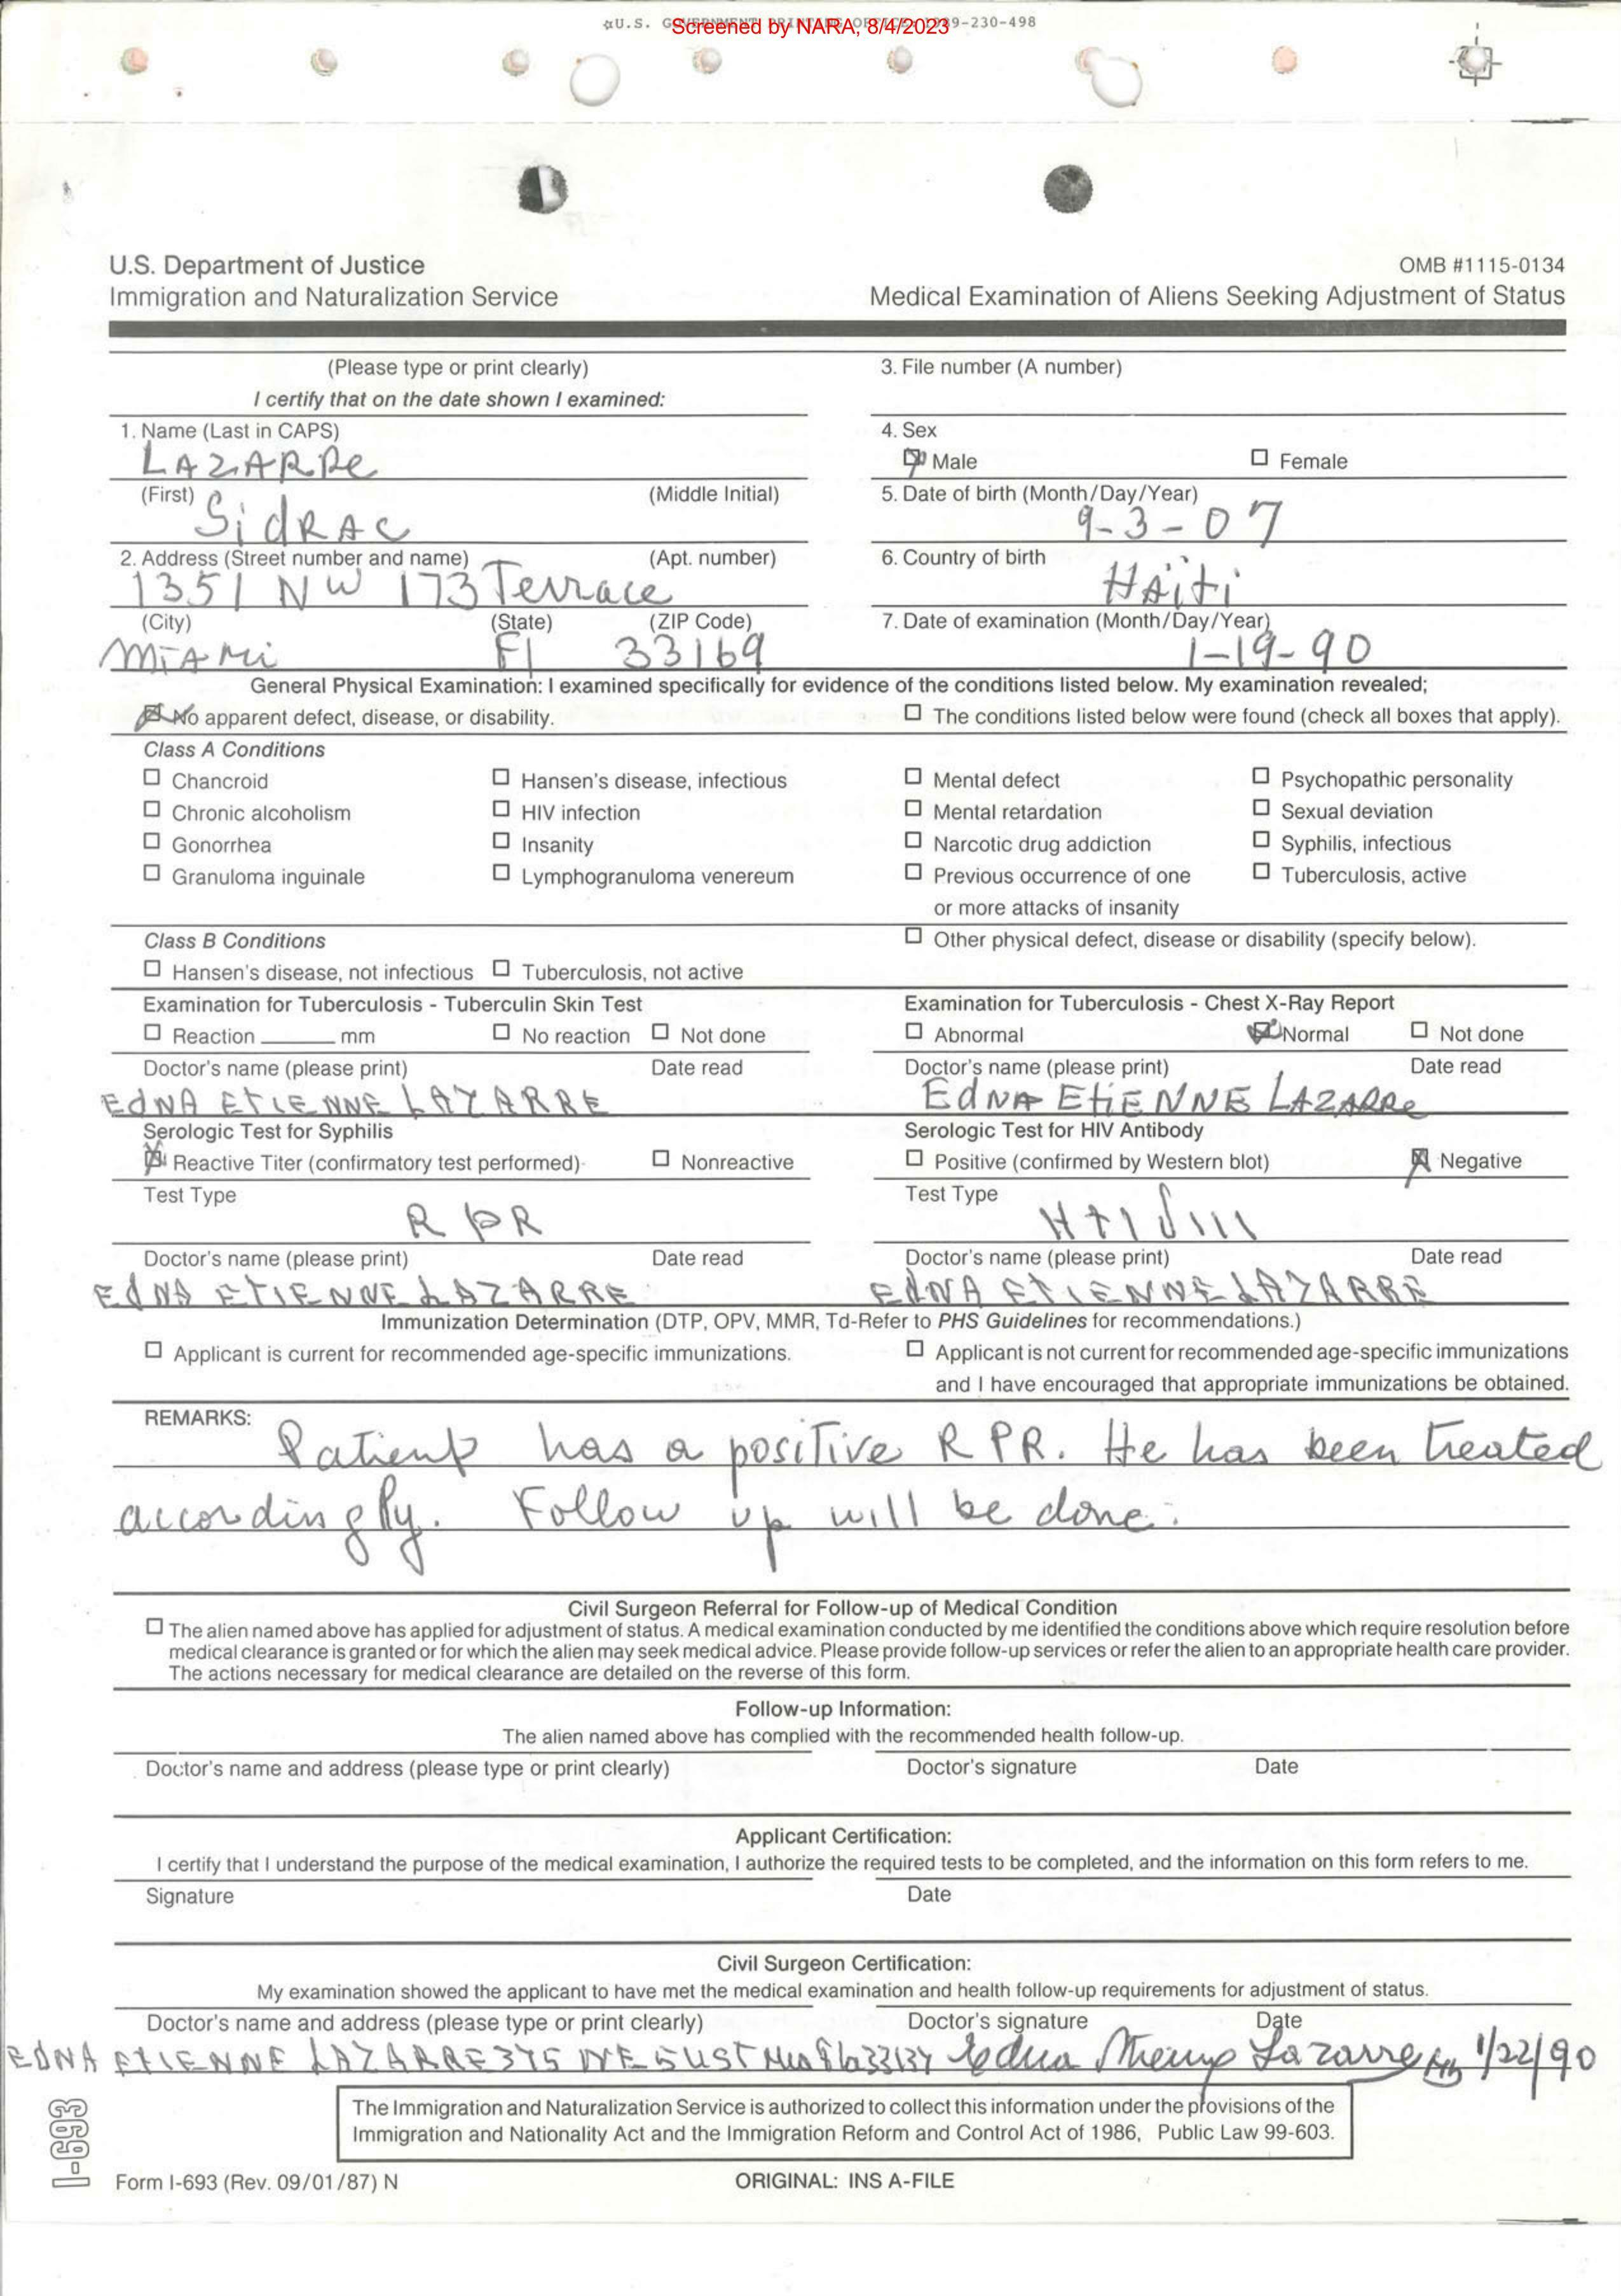 ☆U.S. GOVERNMENT PRINTING OFFICE: 1989-230-498
Screened by NARA, 8/4/2023
U.S. Department of Justice
Immigration and Naturalization Service
OMB #1115-0134
Medical Examination of Aliens Seeking Adjustment of Status
(Please type or print clearly)
I certify that on the date shown I examined:
3. File number (A number)
1. Name (Last in CAPS)
LAZARRe
4. Sex
Male
Female
(First)
(Middle Initial)
SidRAC
5. Date of birth (Month/Day/Year)
9-3-07
2. Address (Street number and name)
(Apt. number)
1351 NW 173 Terrace
6. Country of birth
HAïti
(City)
(State)
(ZIP Code)
MiAMi Fl 33169
7. Date of examination (Month/Day/Year)
1-19-90
General Physical Examination: I examined specifically for evidence of the conditions listed below. My examination revealed;
No apparent defect, disease, or disability.
The conditions listed below were found (check all boxes that apply).
Class A Conditions
Chancroid
Hansen's disease, infectious
Mental defect
Psychopathic personality
Chronic alcoholism
HIV infection
Mental retardation
Sexual deviation
Gonorrhea
Insanity
Narcotic drug addiction
Syphilis, infectious
Granuloma inguinale
Lymphogranuloma venereum
Previous occurrence of one
or more attacks of insanity
Tuberculosis, active
Class B Conditions
Hansen's disease, not infectious
Tuberculosis, not active
Other physical defect, disease or disability (specify below).
Examination for Tuberculosis - Tuberculin Skin Test
Reaction ______ mm
No reaction
Not done
Examination for Tuberculosis - Chest X-Ray Report
Abnormal
Normal
Not done
Doctor's name (please print)
Date read
EdNA ETIENNE LAZARRE
Doctor's name (please print)
Date read
EdNA EtiENNE LAZARRe
Serologic Test for Syphilis
Reactive Titer (confirmatory test performed)
Nonreactive
Serologic Test for HIV Antibody
Positive (confirmed by Western blot)
Negative
Test Type
RPR
Test Type
Doctor's name (please print)
Date read
EdNA ETIENNE LAZARRE
Doctor's name (please print)
Date read
EdNA ETIENNE LAZARRE
Immunization Determination (DTP, OPV, MMR, Td-Refer to PHS Guidelines for recommendations.)
Applicant is current for recommended age-specific immunizations.
Applicant is not current for recommended age-specific immunizations
and I have encouraged that appropriate immunizations be obtained.
REMARKS:
Patient has a positive RPR. He has been treated
accordingly. Follow up will be done.
Civil Surgeon Referral for Follow-up of Medical Condition
The alien named above has applied for adjustment of status. A medical examination conducted by me identified the conditions above which require resolution before
medical clearance is granted or for which the alien may seek medical advice. Please provide follow-up services or refer the alien to an appropriate health care provider.
The actions necessary for medical clearance are detailed on the reverse of this form.
Follow-up Information:
The alien named above has complied with the recommended health follow-up.
Doctor's name and address (please type or print clearly)
Doctor's signature
Date
Applicant Certification:
I certify that I understand the purpose of the medical examination, I authorize the required tests to be completed, and the information on this form refers to me.
Signature
Date
Civil Surgeon Certification:
My examination showed the applicant to have met the medical examination and health follow-up requirements for adjustment of status.
Doctor's name and address (please type or print clearly)
Doctor's signature
Date
EDNA ETIENNE LAZARRE 375 NE 33137 Edna Lazarre 1/22/90
The Immigration and Naturalization Service is authorized to collect this information under the provisions of the
Immigration and Nationality Act and the Immigration Reform and Control Act of 1986, Public Law 99-603.
I-693
Form I-693 (Rev. 09/01/87) N
ORIGINAL: INS A-FILE